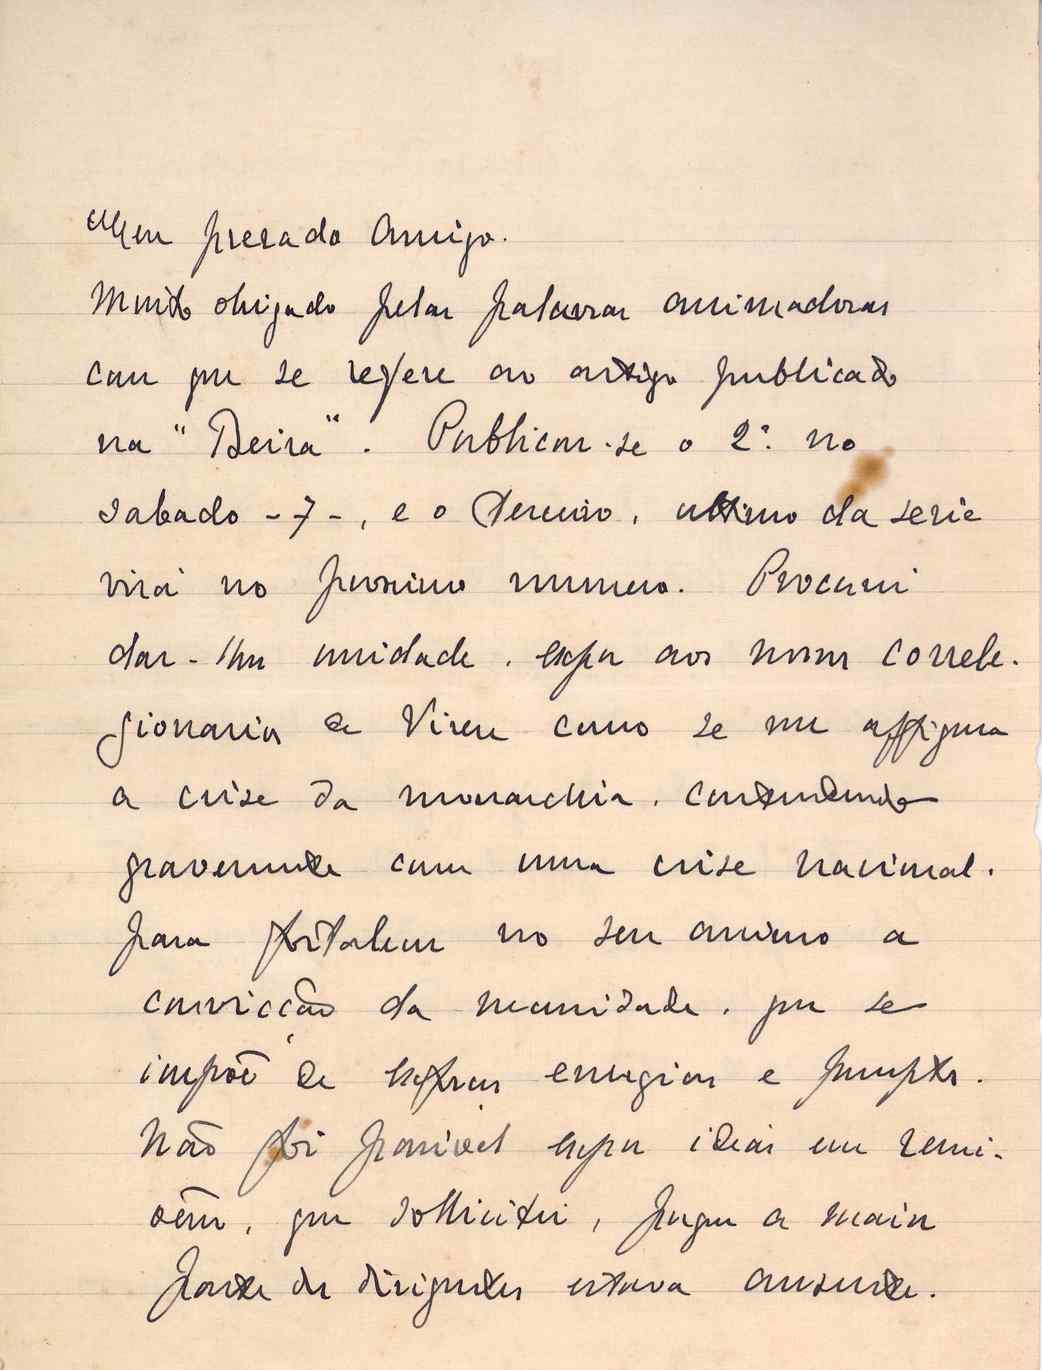 Meu presado Amigo.
Muito obrigado pelas palavras animadoras
com que se refere ao artigo publicado
na "Beira". Publicou-se o 2º. no
sabado - 7 -, e o terceiro, ultimo da serie
virá no proximo numero. Procurei
dar-lhe unidade, expor aos nossos correle-
gionarios de Viseu como se me affigura
a crise da monarchia, contendendo
gravemente com uma crise nacional.
para fortalecer no seu animo a
convicção da necessidade, que se
impõe de esforços energicos e promptos.
Não foi possivel expor ideias em reuni-
oens, que sollicitei, porque a maior
parte dos dirigentes estava ausente.